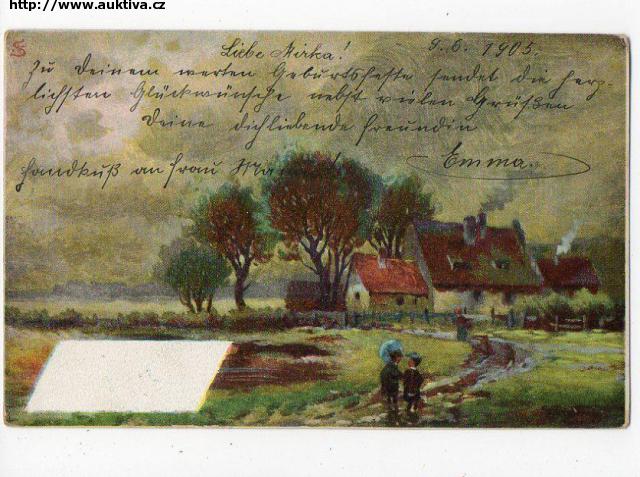 http://www.auktiva.cz
Liebe Mirka! 9.6.1905.
Zu Deinem werten Geburtsfeste sendet die herz-
lichsten Glückwünsche nebst vielen Grüßen
Deine dichliebende Freundin
Emma.
Handkuß an Frau